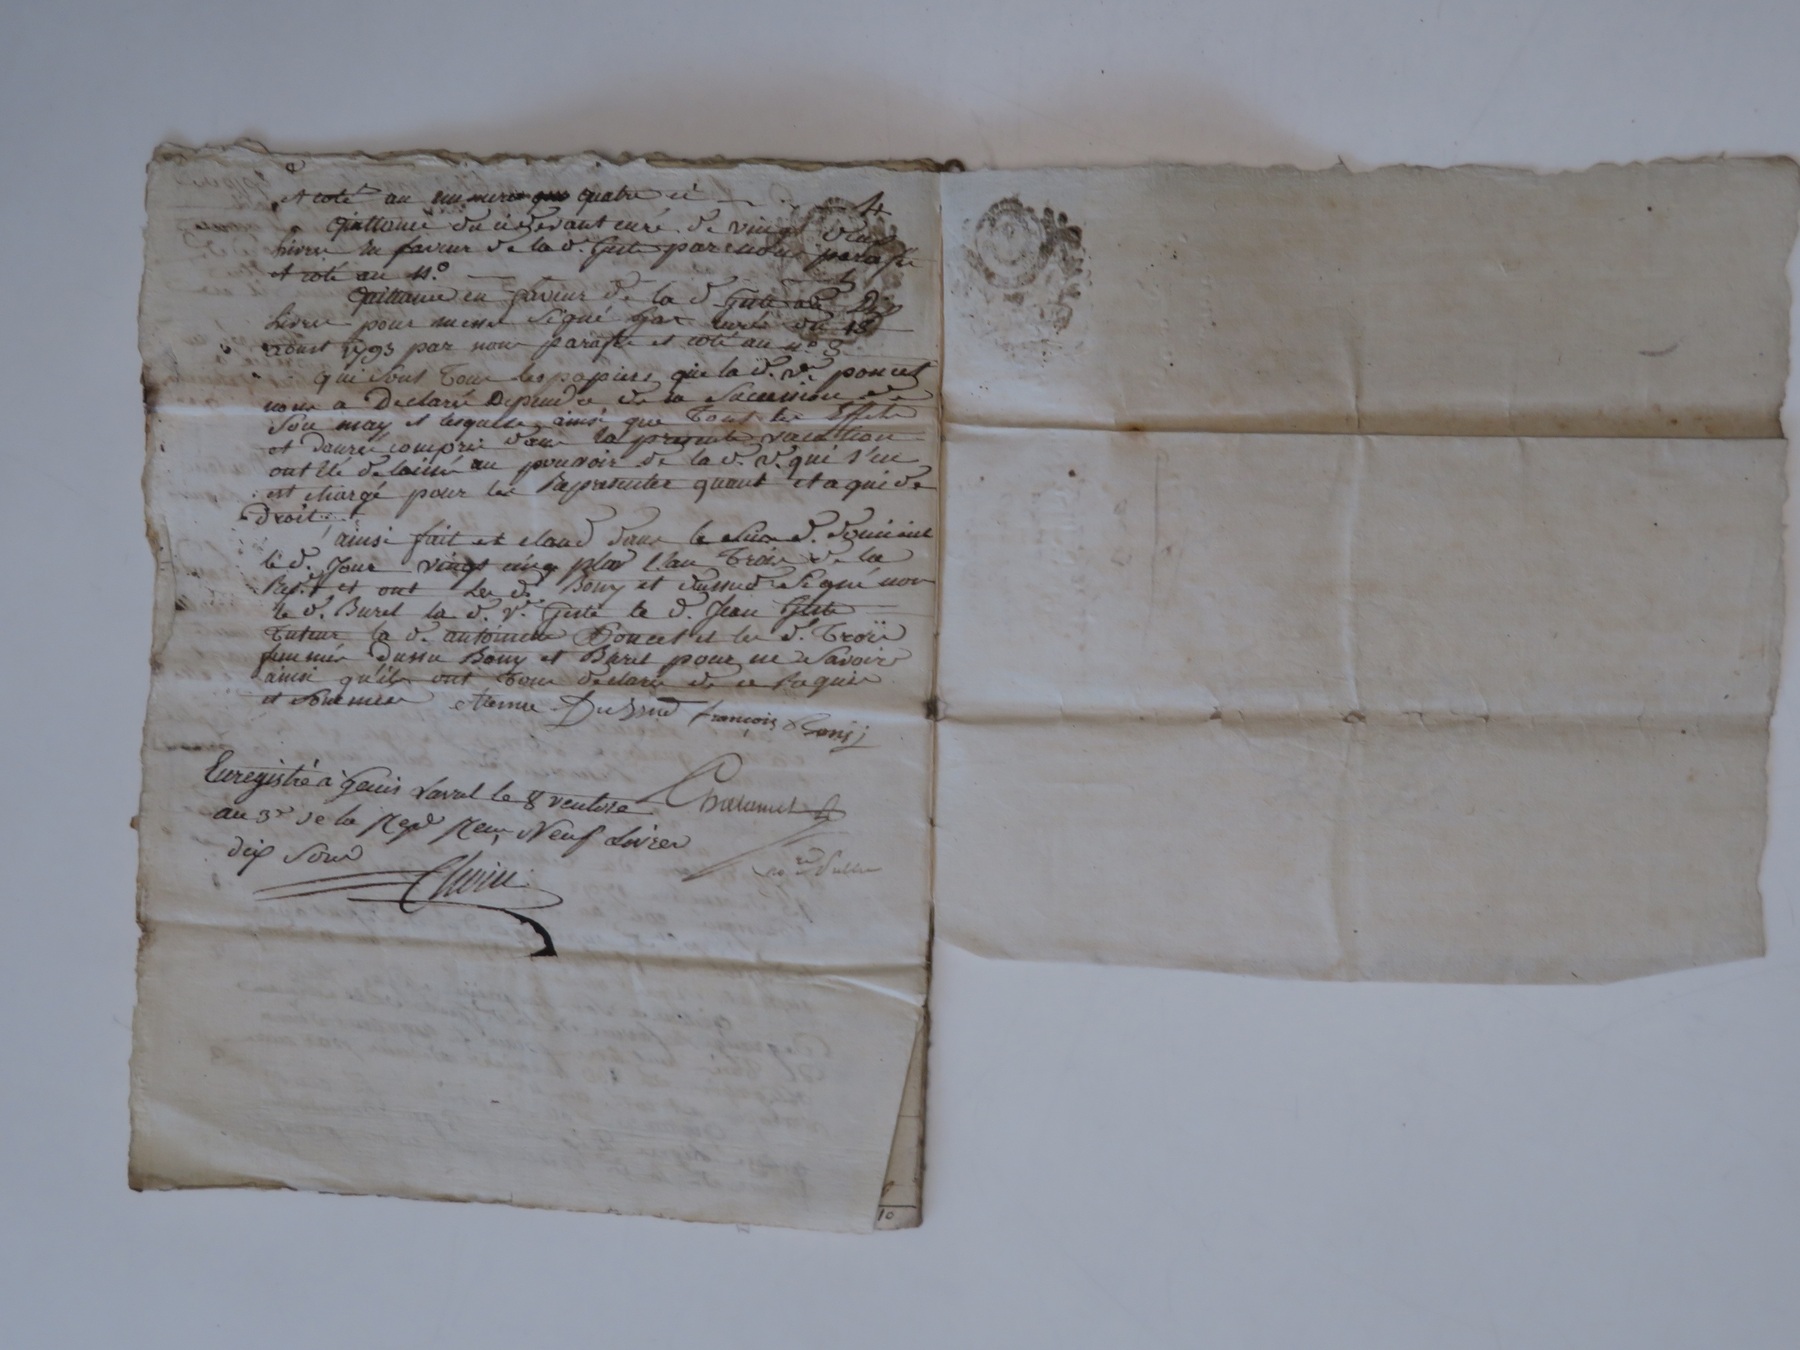 et coté au numero quatre cy 4
Quittance du cidevant curé de vingt deux
livres en faveur de la d. Giste par nous paraffé
et coté au n.° 5
Quittance en faveur de la d. Giste de Dix
livres pour messe signé curé du 18
aoust 1793 par nous paraffé et coté au n.° 3
qui sont tous les papiers que la d. v.e poncet
nous a Declaré Dependre de la Succession de
Son mary et lesquels ainsi que Tout les Effets
et denrés compris dans la presente vacation
ont été delaissé au pouvoir de la d. v.e qui s'en
est chargé pour les Representer quant et a qui de
Droit.
ainsi fait et clos dans le d. domicile
le d. Jour vingt cinq pluv l'an Trois de la
Rep. et ont Les d. Bony et dussud Signé non
le d. Burel la d. v.e Giste le d. Jean Giste
Tuteur la d. antoinette Poncet et les d. Trois
femmes Dussu Bony et Burel pour ne Savoir
ainsi qu'ils ont Tous declaré de ce Requis
et Sommés etienne Dussud françois Bonÿ
Enregistré à Genis Laval le 8 ventose
an 3e de la Repe Reçu Neuf Livres
dix Sous